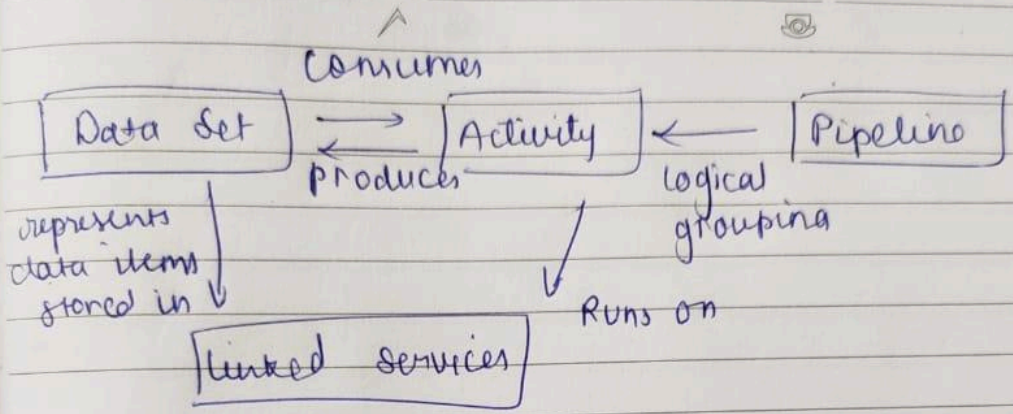 Consumes
Data Set
Activity
Pipeline
Produces
logical
grouping
represents
data items
stored in
Runs on
linked services